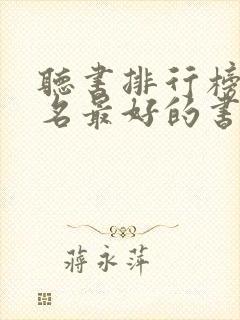 聽書排行榜
名最好的書
蔣永萍